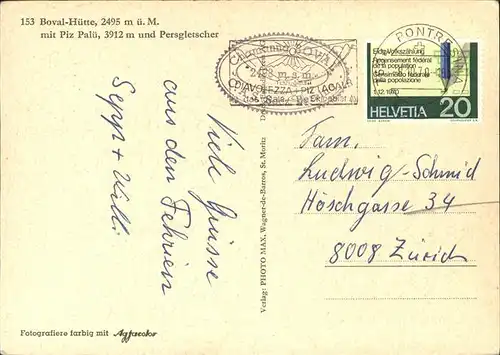 153 Boval-Hütte, 2495 m ü. M.
mit Piz Palü, 3912 m und Persgletscher
Viele Grüsse
aus den Ferien
Sepp + Willi
Fotografiere farbig mit Agfacolor
Verlag: PHOTO MAX, Wagner-de-Barros, St. Moritz
BOVAL
2495 m.s.m.
PONTRE
Eidg. Volkszählung
Recensement fédéral
de la population
Censimento federale
della popolazione
1.12.1970
HELVETIA 20
Fam.
Ludwig-Schmid
Höschgasse 34
8008 Zürich